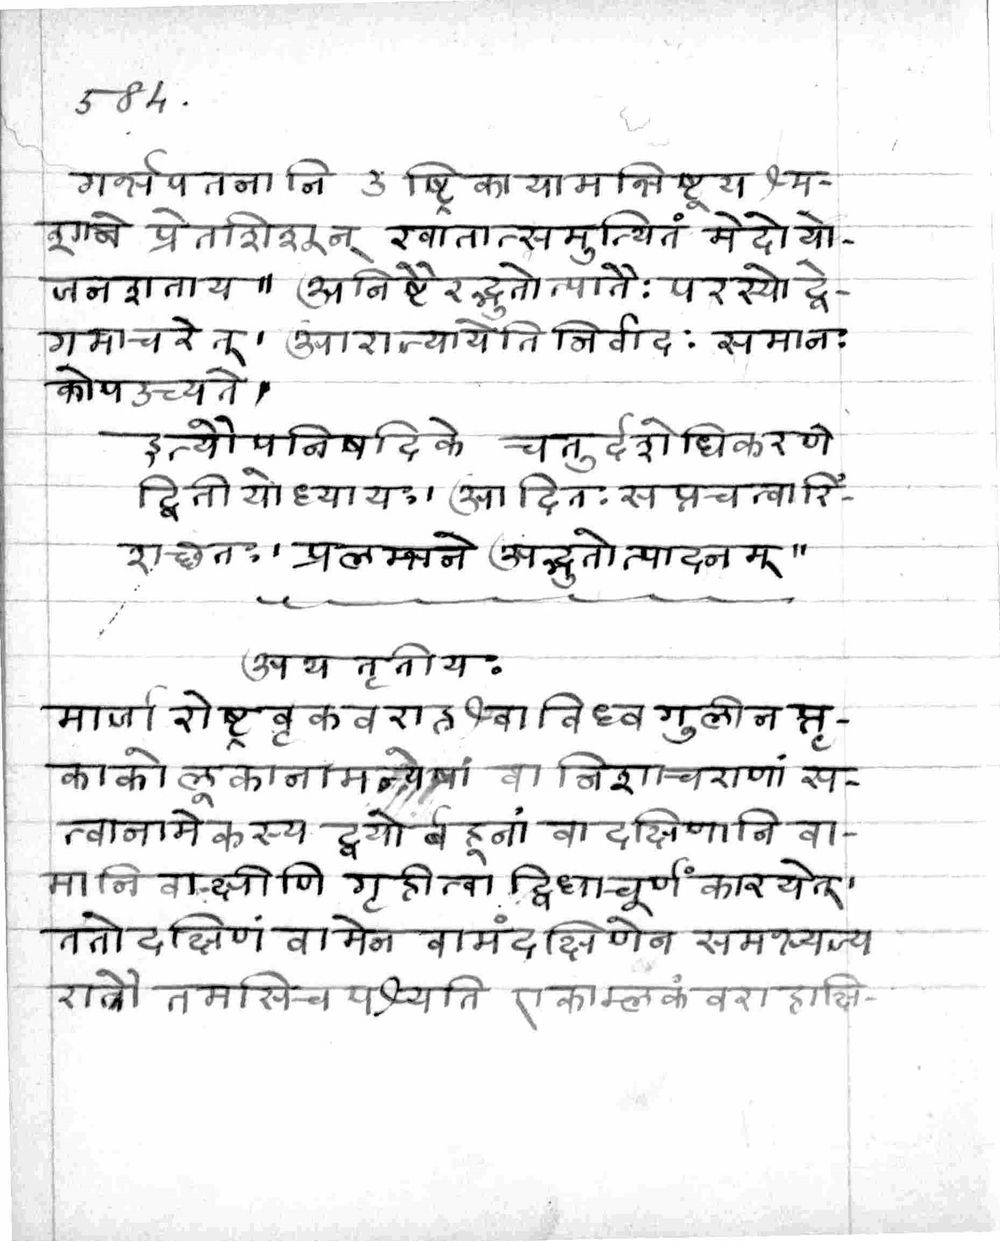 584.
गर्भपतनानि उष्ट्रिकायामभिषूय श्म-
शाने प्रेतशिशून् खातात्समुत्थितं मेदो यो-
जनशताय॥ अनिष्टैरद्भुतोत्पातैः परस्योद्वे-
गमाचरेत्। आराज्यायेति निर्वादः समानः
कोप उच्यते।
इत्यौपनिषदिके चतुर्दशोधिकरणे
द्वितीयोध्यायः। आदितः सप्तचत्वारिं-
शच्छतः। प्रलम्भने अद्भुतोत्पादनम्॥
अथ तृतीयः
मार्जारोष्ट्रवृकवराहश्वाविध्वगुलीनप्तृ-
काकोलूकानामन्येषां वा निशाचराणां स-
त्वानामेकस्य द्वयोर्बहूनां वा दक्षिणानि वा-
मानि वाक्षीणि गृहीत्वा द्विधा चूर्णं कारयेत्।
ततो दक्षिणं वामेन वामं दक्षिणेन समभ्यज्य
रात्रौ तमसि च पश्यति एकाम्लकं वराहाक्षि-